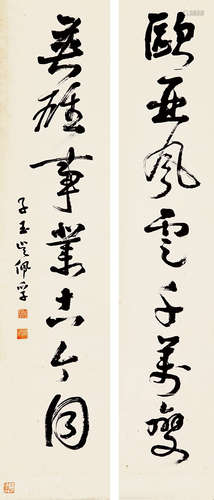 歐亞風雲千萬變
英雄事業古今同
子玉吳佩孚